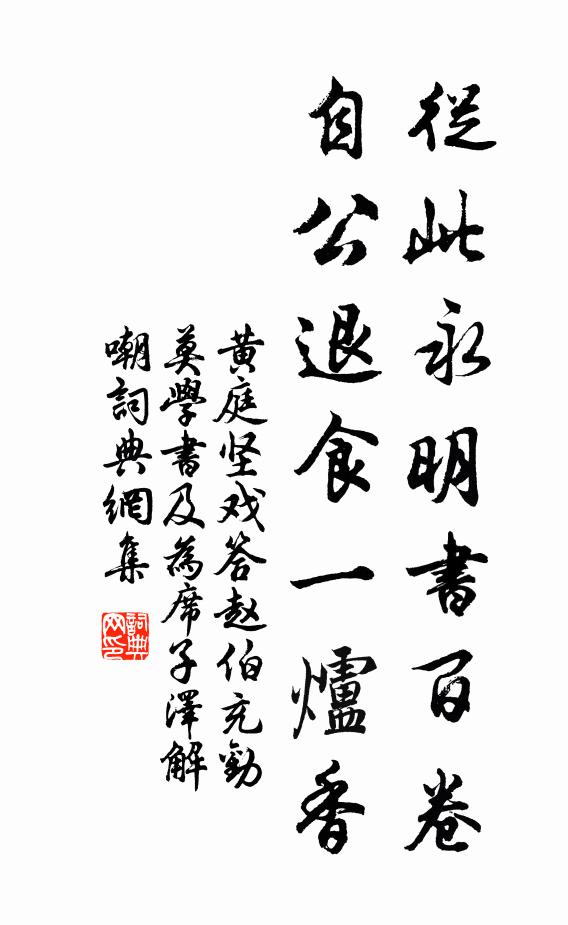 從此永明書百卷
自公退食一爐香
黄庭坚戏答赵伯充勸
莫學書及為席子澤解
嘲詞典網集
詞典网印